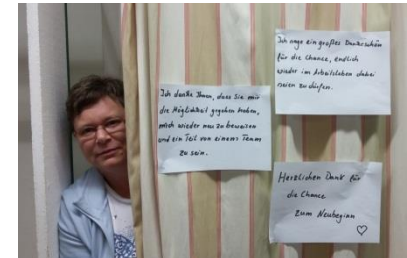 Ich danke Ihnen, dass Sie mir
die Möglichkeit gegeben haben,
mich wieder neu zu beweisen
und ein Teil von einem Team
zu sein.
Ich sage ein großes Dankeschön
für die Chance, endlich
wieder im Arbeitsleben dabei
sein zu dürfen.
Herzlichen Dank für
die Chance
zum Neubeginn